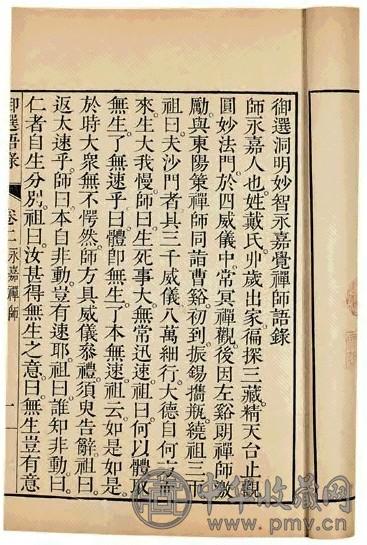 御選洞明妙智永嘉覺禪師語錄
師永嘉人也。姓戴氏。丱歲出家。徧探三藏。精天台止觀
圓妙法門。於四威儀中。常冥禪觀。後因左谿朗禪師激
勵。與東陽策禪師同詣曹谿。初到。振錫攜瓶。繞祖三匝。
祖曰。夫沙門者。具三千威儀。八萬細行。大德自何方而
來。生大我慢。師曰。生死事大。無常迅速。祖曰。何以體取
無生。了無速乎。曰。體即無生。了本無速。祖云。如是如是。
於時大衆無不愕然。師方具威儀叅禮。須臾告辭。祖曰。
返太速乎。師曰。本自非動。豈有速耶。祖曰。誰知非動。曰。
仁者自生分別。祖曰。汝甚得無生之意。曰。無生豈有意
御選語錄 卷二 永嘉禪師 一
中华收藏网
www.pmy.cn